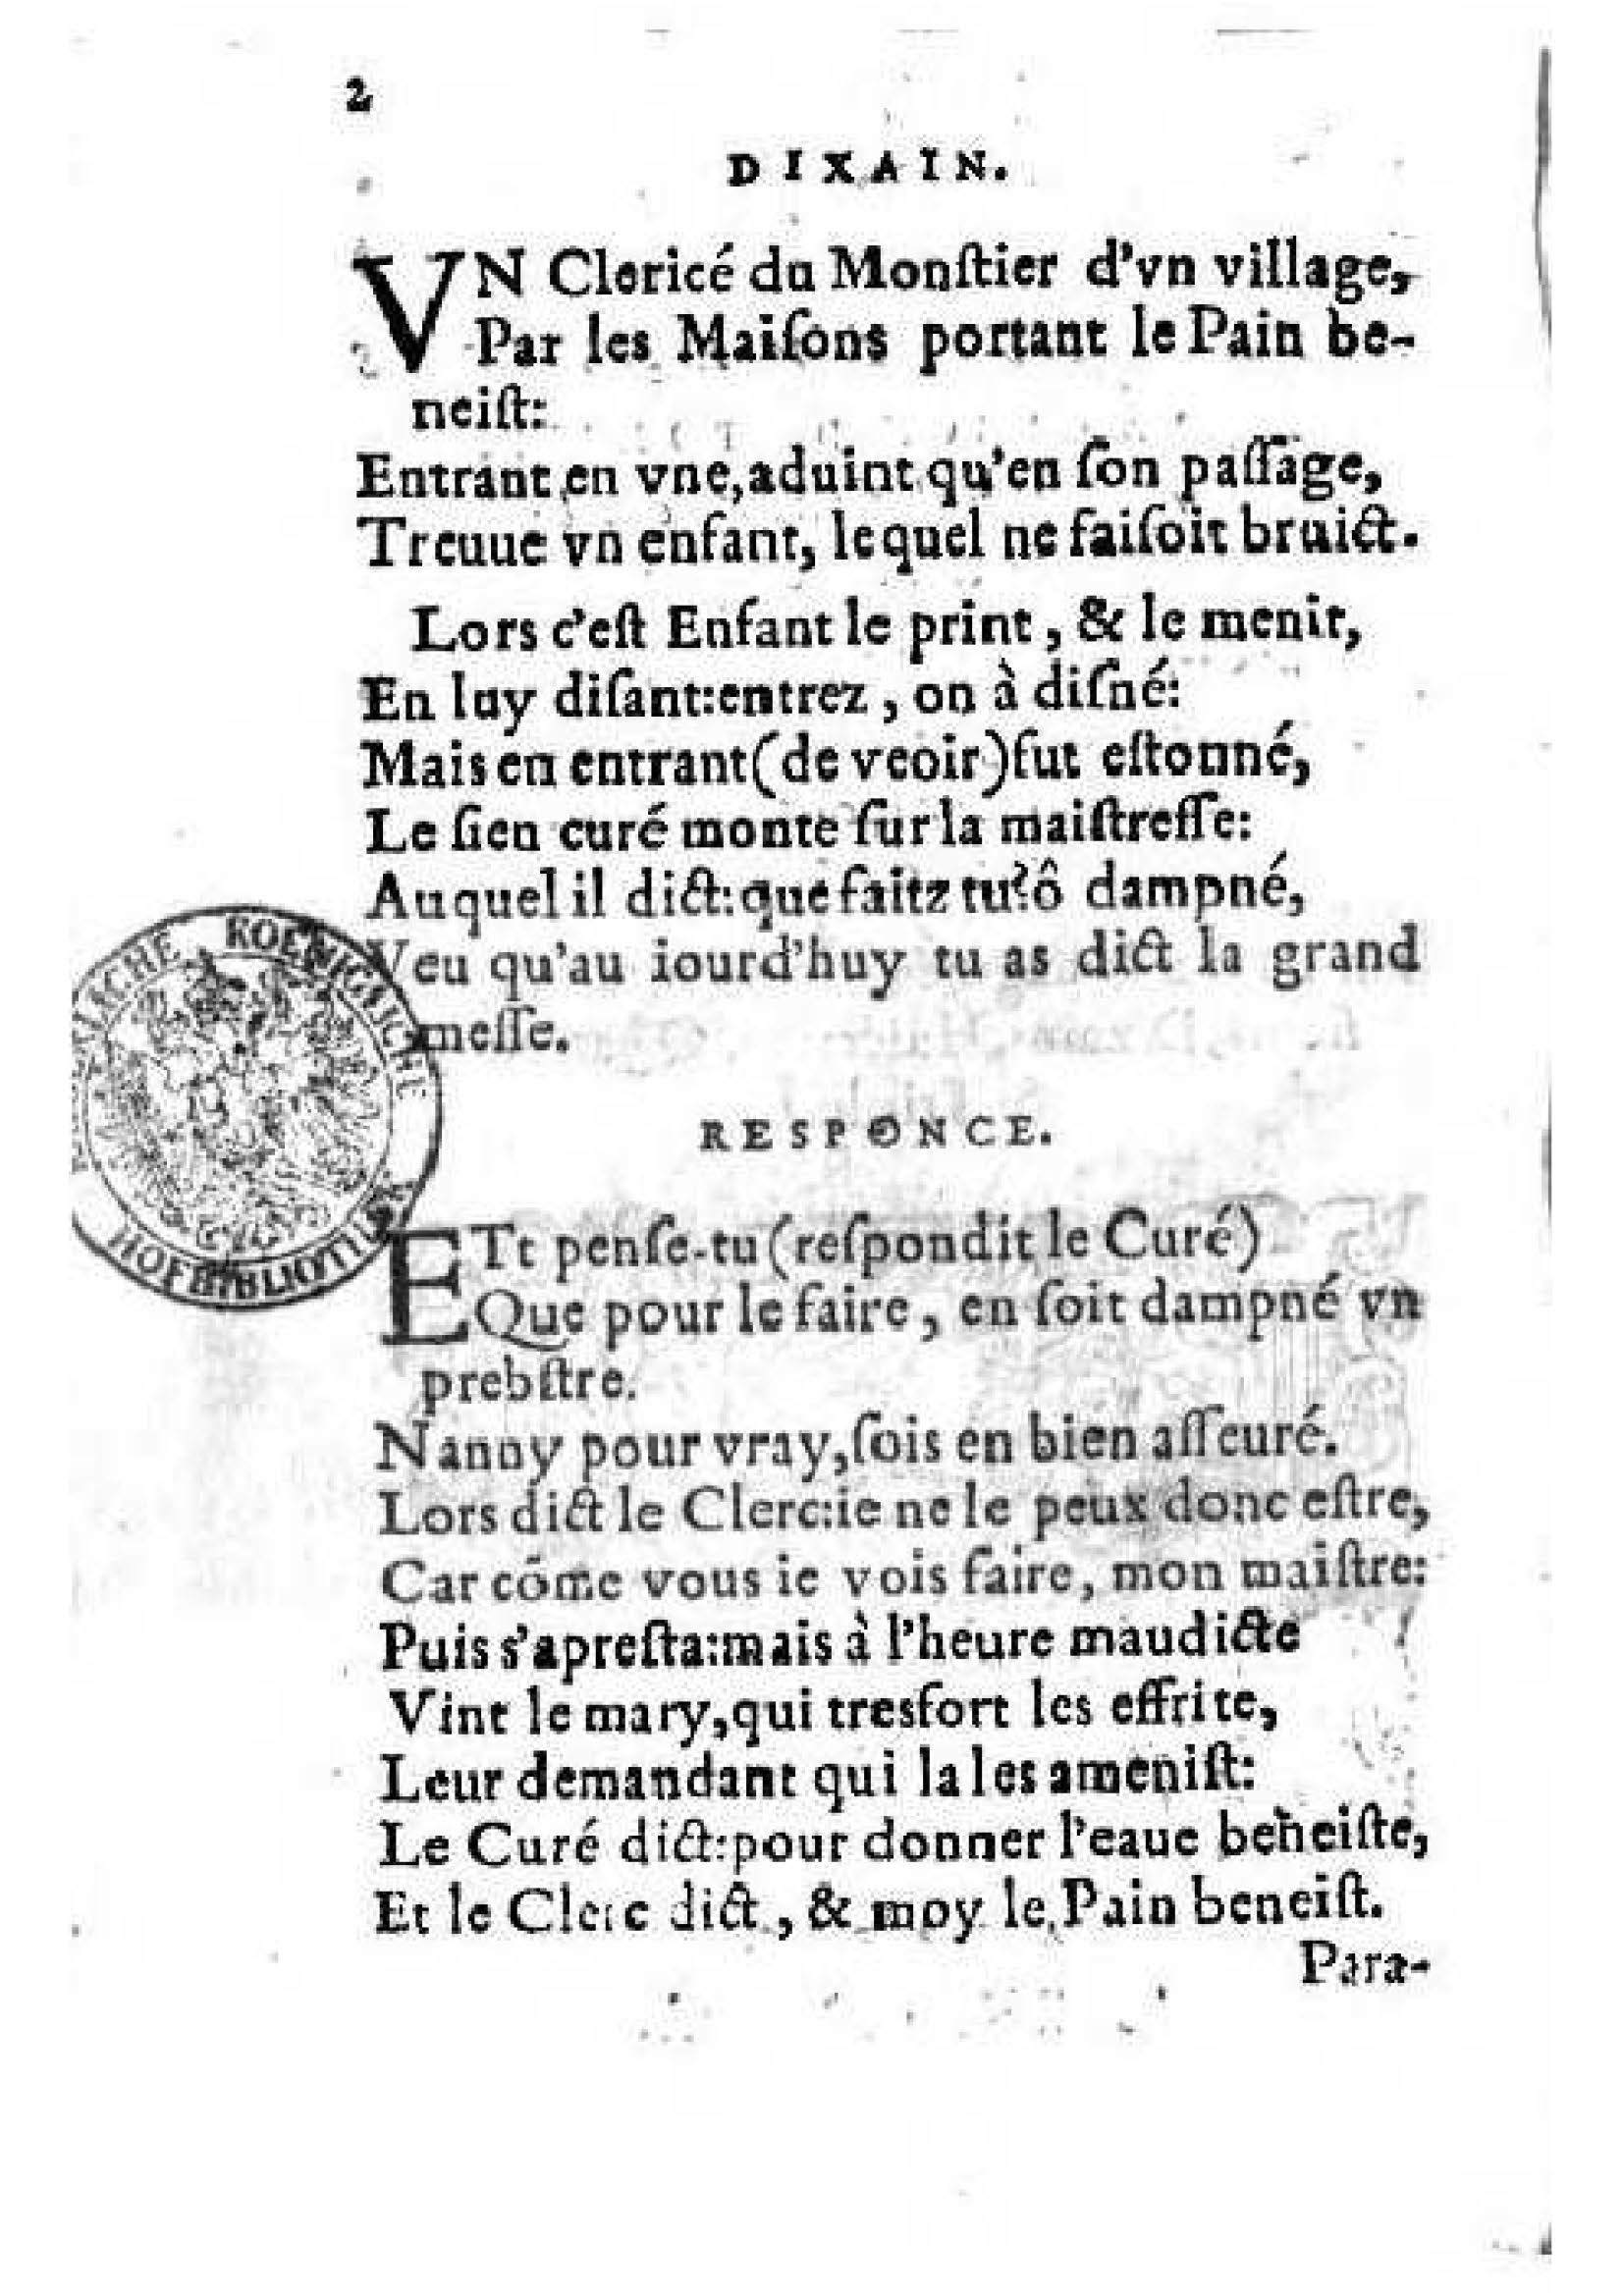 2
DIXAIN.
VN Clericé du Monſtier d'vn village,
Par les Maiſons portant le Pain be-
neiſt:
Entrant en vne, aduint qu'en ſon paſſage,
Treuue vn enfant, lequel ne faiſoit bruict.
Lors c'eſt Enfant le print, & le menit,
En luy diſant: entrez, on à diſné:
Mais en entrant (de veoir) fut eſtonné,
Le ſien curé monte ſur la maiſtreſſe:
Auquel il dict: que faitz tu? ô dampné,
Veu qu'au iourd'huy tu as dict la grand
meſſe.
RESPONCE.
ETt penſe-tu (reſpondit le Curé)
Que pour le faire, en ſoit dampné vn
prebſtre.
Nanny pour vray, ſois en bien aſſeuré.
Lors dict le Clerc: ie ne le peux donc eſtre,
Car cõme vous ie vois faire, mon maiſtre:
Puis s'apreſta: mais à l'heure maudicte
Vint le mary, qui tresfort les effrite,
Leur demandant qui la les ameniſt:
Le Curé dict: pour donner l'eaue beneiſte,
Et le Clerc dict, & moy le Pain beneiſt.
Para-
KOENIGLICHE
HOFBIBLIOTHEK